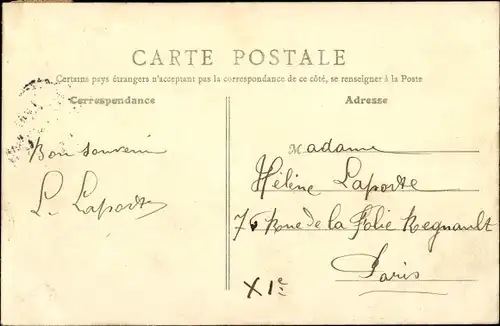 CARTE POSTALE
Certains pays étrangers n'acceptent pas la correspondance de ce côté, se renseigner à la Poste
Correspondance
Adresse
Bon souvenir
L. Laporte
Madame
Hélène Laporte
7 Rue de la Folie Regnault
Paris
XIe